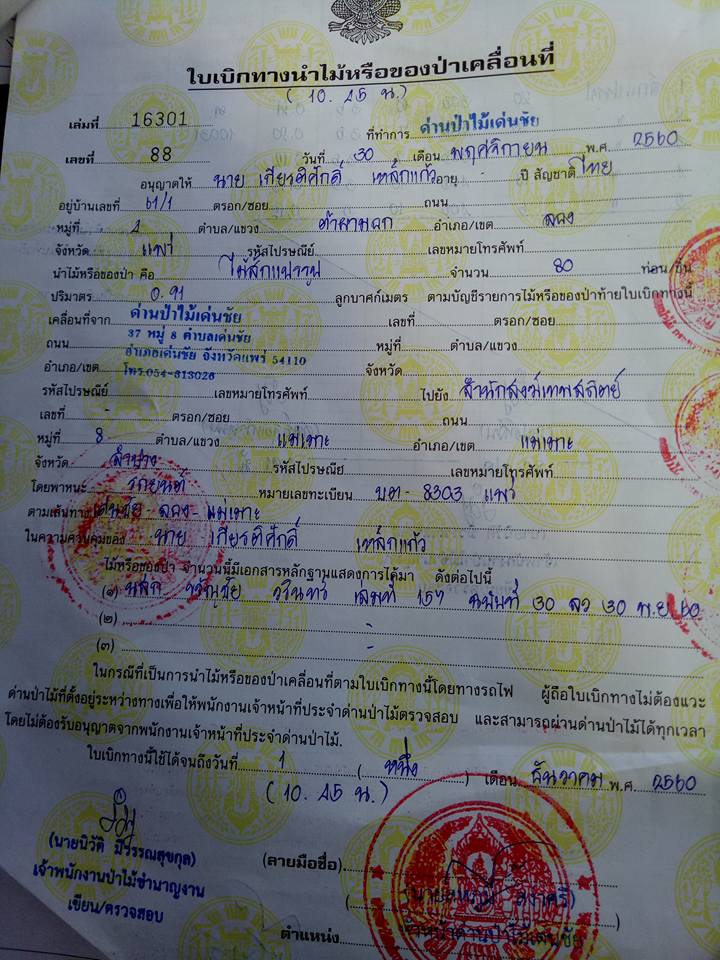 ใบเบิกทางนำไม้หรือของป่าเคลื่อนที่
(10.45 น.)
เล่มที่ 16301 ที่ทำการ ด่านป่าไม้เด่นชัย
เลขที่ 88 วันที่ 30 เดือน พฤศจิกายน พ.ศ. 2560
อนุญาตให้ นาย เกียรติศักดิ์ เหล็กแก้ว อายุ - ปี สัญชาติ ไทย
อยู่บ้านเลขที่ 61/1 ตรอก/ซอย ถนน
หมู่ที่ 4 ตำบล/แขวง ต้าผามอก อำเภอ/เขต ลอง
จังหวัด แพร่ รหัสไปรษณีย์ เลขหมายโทรศัพท์
นำไม้หรือของป่า คือ ไม้สักแปรรูป จำนวน 80 ท่อน/ชิ้น
ปริมาตร 0.91 ลูกบาศก์เมตร ตามบัญชีรายการไม้หรือของป่าท้ายใบเบิกทางนี้
เคลื่อนที่จาก ด่านป่าไม้เด่นชัย เลขที่ ตรอก/ซอย
37 หมู่ 8 ตำบลเด่นชัย
ถนน หมู่ที่ ตำบล/แขวง
อำเภอเด่นชัย จังหวัดแพร่ 54110
อำเภอ/เขต โทร.054-613026 จังหวัด
รหัสไปรษณีย์ เลขหมายโทรศัพท์ ไปยัง สำนักสงฆ์เทพสถิตย์
เลขที่ - ตรอก/ซอย ถนน
หมู่ที่ 8 ตำบล/แขวง แม่เมาะ อำเภอ/เขต แม่เมาะ
จังหวัด ลำปาง รหัสไปรษณีย์ เลขหมายโทรศัพท์
โดยพาหนะ รถยนต์ หมายเลขทะเบียน บต-8303 แพร่
ตามเส้นทาง เด่นชัย - ลอง - แม่เมาะ
ในความควบคุมของ นาย เกียรติศักดิ์ เหล็กแก้ว
ไม้หรือของป่า จำนวนที่มีเอกสารหลักฐานแสดงการได้มา ดังต่อไปนี้
(๑) ขวัญชัย วรินทร์ เล่มที่ 157 ฉบับที่ 30 ลว 30 พ.ย 60
(๒) -
(๓) -
ในกรณีที่เป็นการนำไม้หรือของป่าเคลื่อนที่ตามใบเบิกทางนี้โดยทางรถไฟ ผู้ถือใบเบิกทางไม่ต้องแวะ
ด่านป่าไม้ที่ตั้งอยู่ระหว่างทางเพื่อให้พนักงานเจ้าหน้าที่ประจำด่านป่าไม้ตรวจสอบ และสามารถผ่านด่านป่าไม้ได้ทุกเวลา
โดยไม่ต้องรับอนุญาตจากพนักงานเจ้าหน้าที่ประจำด่านป่าไม้.
ใบเบิกทางนี้ใช้ได้จนถึงวันที่ 1 (หนึ่ง) เดือน ธันวาคม พ.ศ. 2560
(10.45 น.)
(นายนิวัติ มีวรรณสุขกุล)
เจ้าพนักงานป่าไม้ชำนาญงาน
เขียน/ตรวจสอบ
(ลายมือชื่อ)
ตำแหน่ง หัวหน้าด่านป่าไม้เด่นชัย